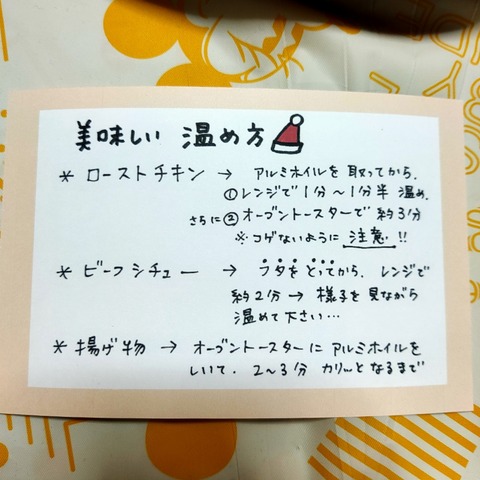 美味しい 温め方
* ローストチキン → アルミホイルを取ってから、
①レンジで1分〜1分半 温め、
さらに②オーブントースターで 約3分
※コゲないように 注意!!
* ビーフシチュー → フタをとってから、レンジで
約2分→ 様子を見ながら
温めて下さい…
* 揚げ物 → オーブントースターに アルミホイルを
しいて、2〜3分 カリッとなるまで